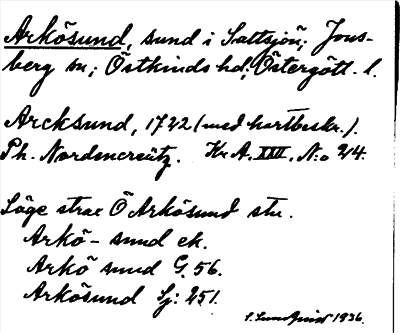 Arkösund, sund i Saltsjön; Jons-
berg sn; Östkinds hd; Östergötl. l.
Arcksund, 1722 (med kartbeskr.).
Ph. Nordencreütz. Kr. A. XXII, N:o 24.
Läge strax Ö Arkösund stn.
Arkö-sund ek.
Arkö sund G. 56.
Arkösund Lj: 251.
S. Lundqvist 1936.